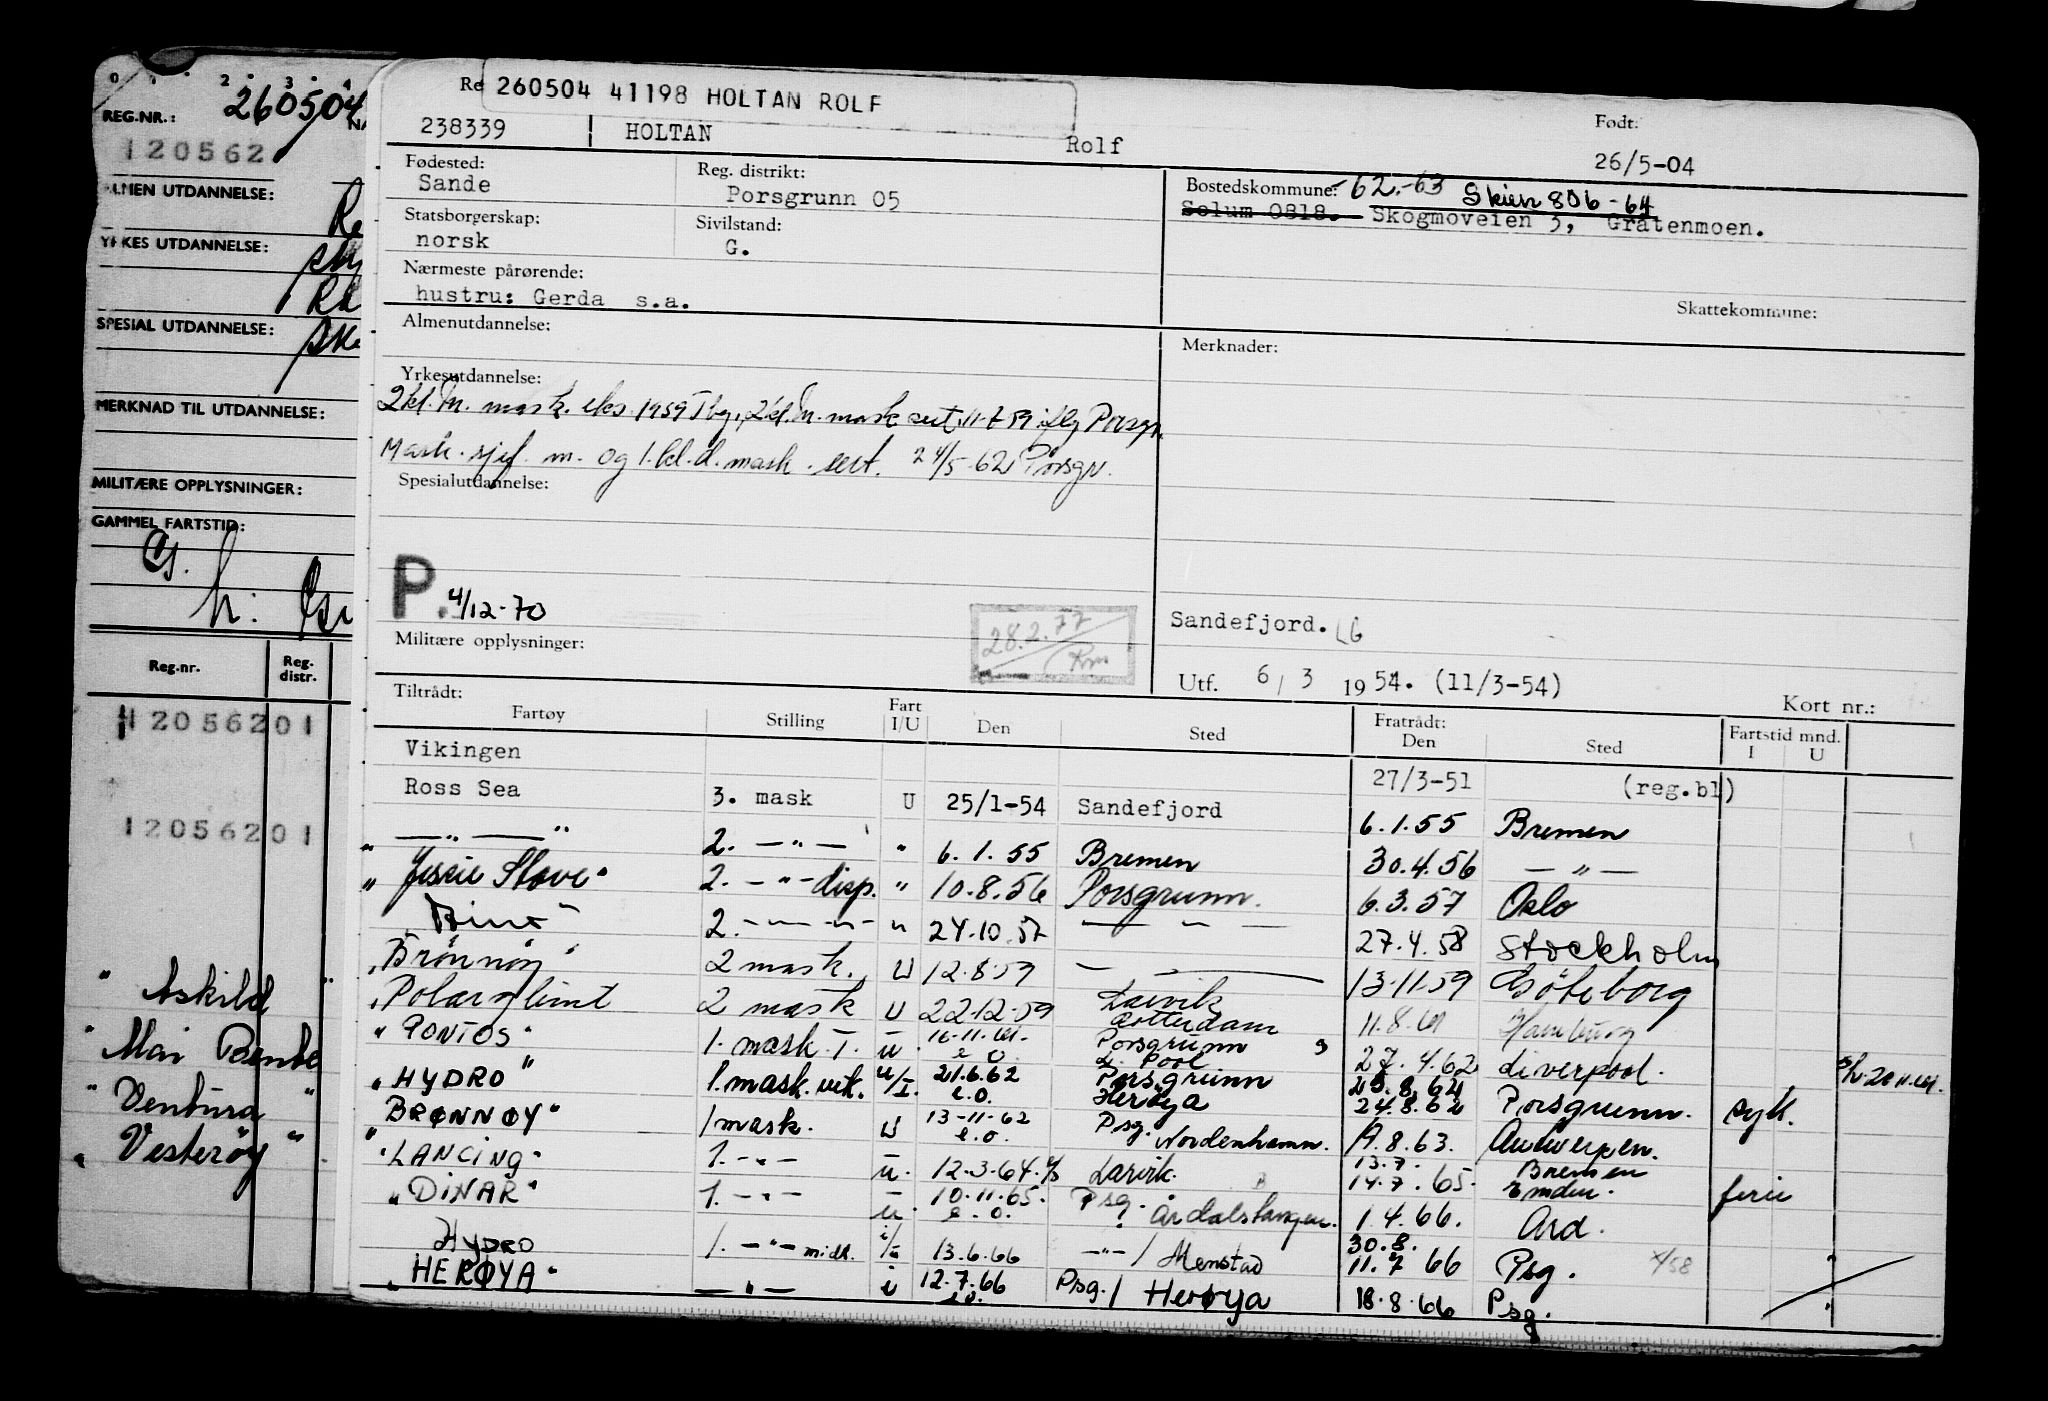 REG.NR.: 260504
120562
ALMEN UTDANNELSE:
YRKES UTDANNELSE:
SPESIAL UTDANNELSE:
MERKNAD TIL UTDANNELSE:
MILITÆRE OPPLYSNINGER:
GAMMEL FARTSTID:
Reg.nr. Reg. distr.
12056201
12056201
" Askild "
" Mai
" Ventura "
" Vesterøy "
Re 260504 41198 HOLTAN ROLF
238339 HOLTAN Rolf
Født:
26/5-04
Fødested: Reg. distrikt: Bostedskommune: -62.-63 Skien 806-64
Sande Porsgrunn 05 Solum 0818. Skogmoveien 3, Gråtenmoen.
Statsborgerskap: Sivilstand:
norsk G.
Nærmeste pårørende:
hustru: Gerda s.a.
Skattekommune:
Almenutdannelse:
Merknader:
Yrkesutdannelse:
2kl. m. mask. eks. 1959 Tbg., 2kl. m. mask sert. 11-7-59 iflg Porsgr.
Mask. sjef. m. og 1.kl.d. mask. sert. 24/5-62 Porsgr.
Spesialutdannelse:
P. 4/12-70
28.2.77
Militære opplysninger:
Sandefjord. LG
Utf. 6/3 1954. (11/3-54)
Kort nr.:
Tiltrådt: Fratrådt:
Fartøy Stilling Fart I/U Den Sted Den Sted Fartstid mnd. I U
Vikingen 27/3-51 (reg.bl)
Ross Sea 3. mask U 25/1-54 Sandefjord 6.1.55 Bremen
— " — " 2. — " — " 6.1.55 Bremen 30.4.56 — " —
" Jessie Stove " 2. — " — disp. " 10.8.56 Porsgrunn. 6.3.57 Oslo
2. — " — " 24.10.57 — " — 27.4.58 Stockholm
"Brønnøy" 2 mask. U 12.8.59 — 13.11.59 Göteborg
"Polarglimt 2 mask U 22.12.59 Larvik 11.8.61 Hamburg
"PONTOS" 1. mask. T. u 16.11.61. e.o. Rotterdam Porsgrunn 27.4.62 Liverpool.
"HYDRO" 1. mask. vik. u/I. 21.6.62 e.o. L. Pool Porsgrunn Herøya 24.8.62 Porsgrunn. syk.
BRØNNØY" 1 mask. U 13-11-62 e.o. Psg. Nordenhamn. 19.8.63. Antwerpen.
"LANCING" 1. — " — u. 12.3.64. Larvik. 13.7. 14.7.65. Bremen Emden. ferie
"DINAR" 1. — " — u. 10.11.65. e.o. Psg. Årdalstangen. 1.4.66. Ård.
HYDRO 1. — " — midl. 13.6.66 — " — / Menstad 30.8. 11.7 66 Psg. "
"HERØYA" — " — i 12.7.66 e.o. Psg./ Herøya 18.8.66 Psg. "